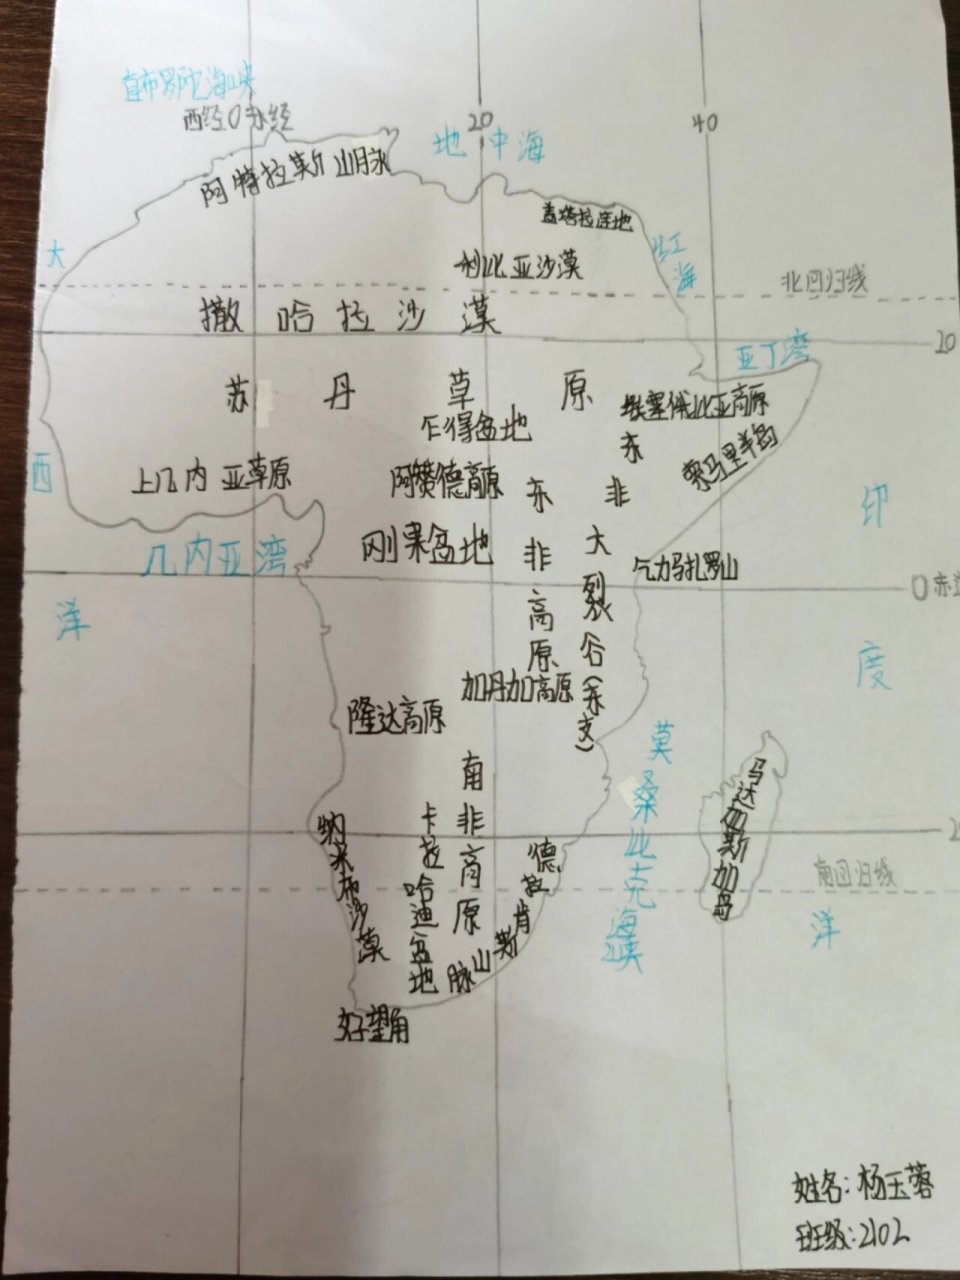 直布罗陀海峡
西经0东经
20
40
地中海
阿特拉斯山脉
盖塔拉洼地
红海
利比亚沙漠
北回归线
撒哈拉沙漠
20
亚丁湾
苏丹草原
埃塞俄比亚高原
乍得盆地
索马里半岛
上几内亚草原
阿赞德高原
东非大裂谷(东支)
东非高原
刚果盆地
几内亚湾
乞力马扎罗山
0赤道
大西洋
印度洋
加丹加高原
隆达高原
莫桑比克海峡
马达加斯加岛
南非高原
卡拉哈迪盆地
纳米布沙漠
德拉肯斯山脉
2
南回归线
好望角
姓名:杨玉蓉
班级:2102